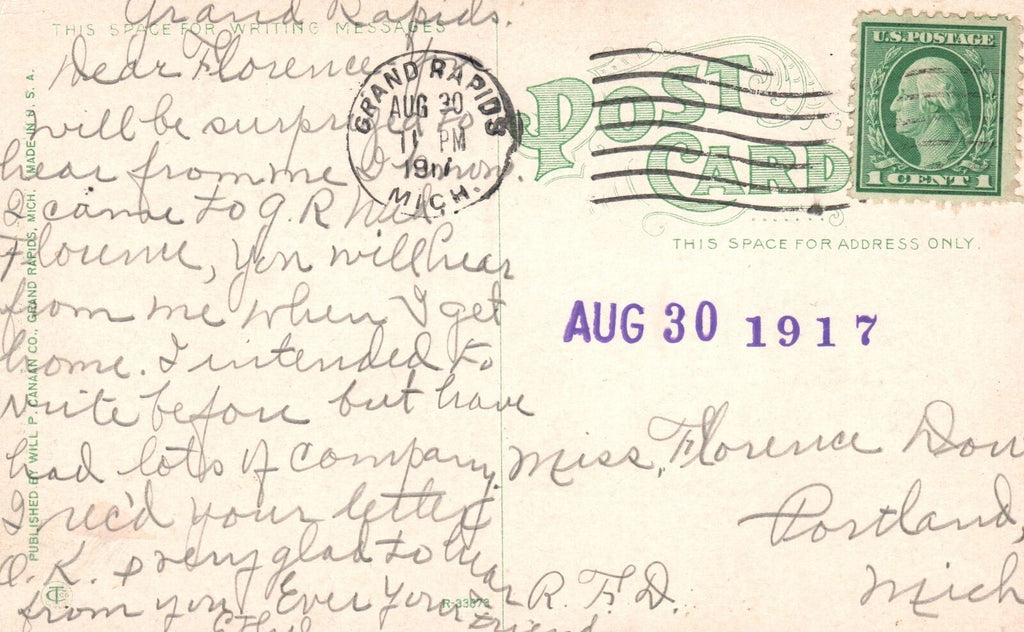 Grand Rapids.
THIS SPACE FOR WRITING MESSAGES
Dear Florence you
will be surprised to
hear from me I know.
I came to G. R Wed,
Florence, you will hear
from me when I get
home. I intended to
write before but have
had lots of company.
I rec'd your letter
O. K. & very glad to hear
from you Ever Your
friend
Ethel
PUBLISHED BY WILL P. CANAAN CO., GRAND RAPIDS, MICH. (MADE IN U. S. A.
R-33673
GRAND RAPIDS
AUG 30
11 PM
1917
MICH.
POST
CARD
U.S. POSTAGE
1 CENT 1
THIS SPACE FOR ADDRESS ONLY.
AUG 30 1917
Miss. Florence Dow
Portland,
Mich
R. F. D.